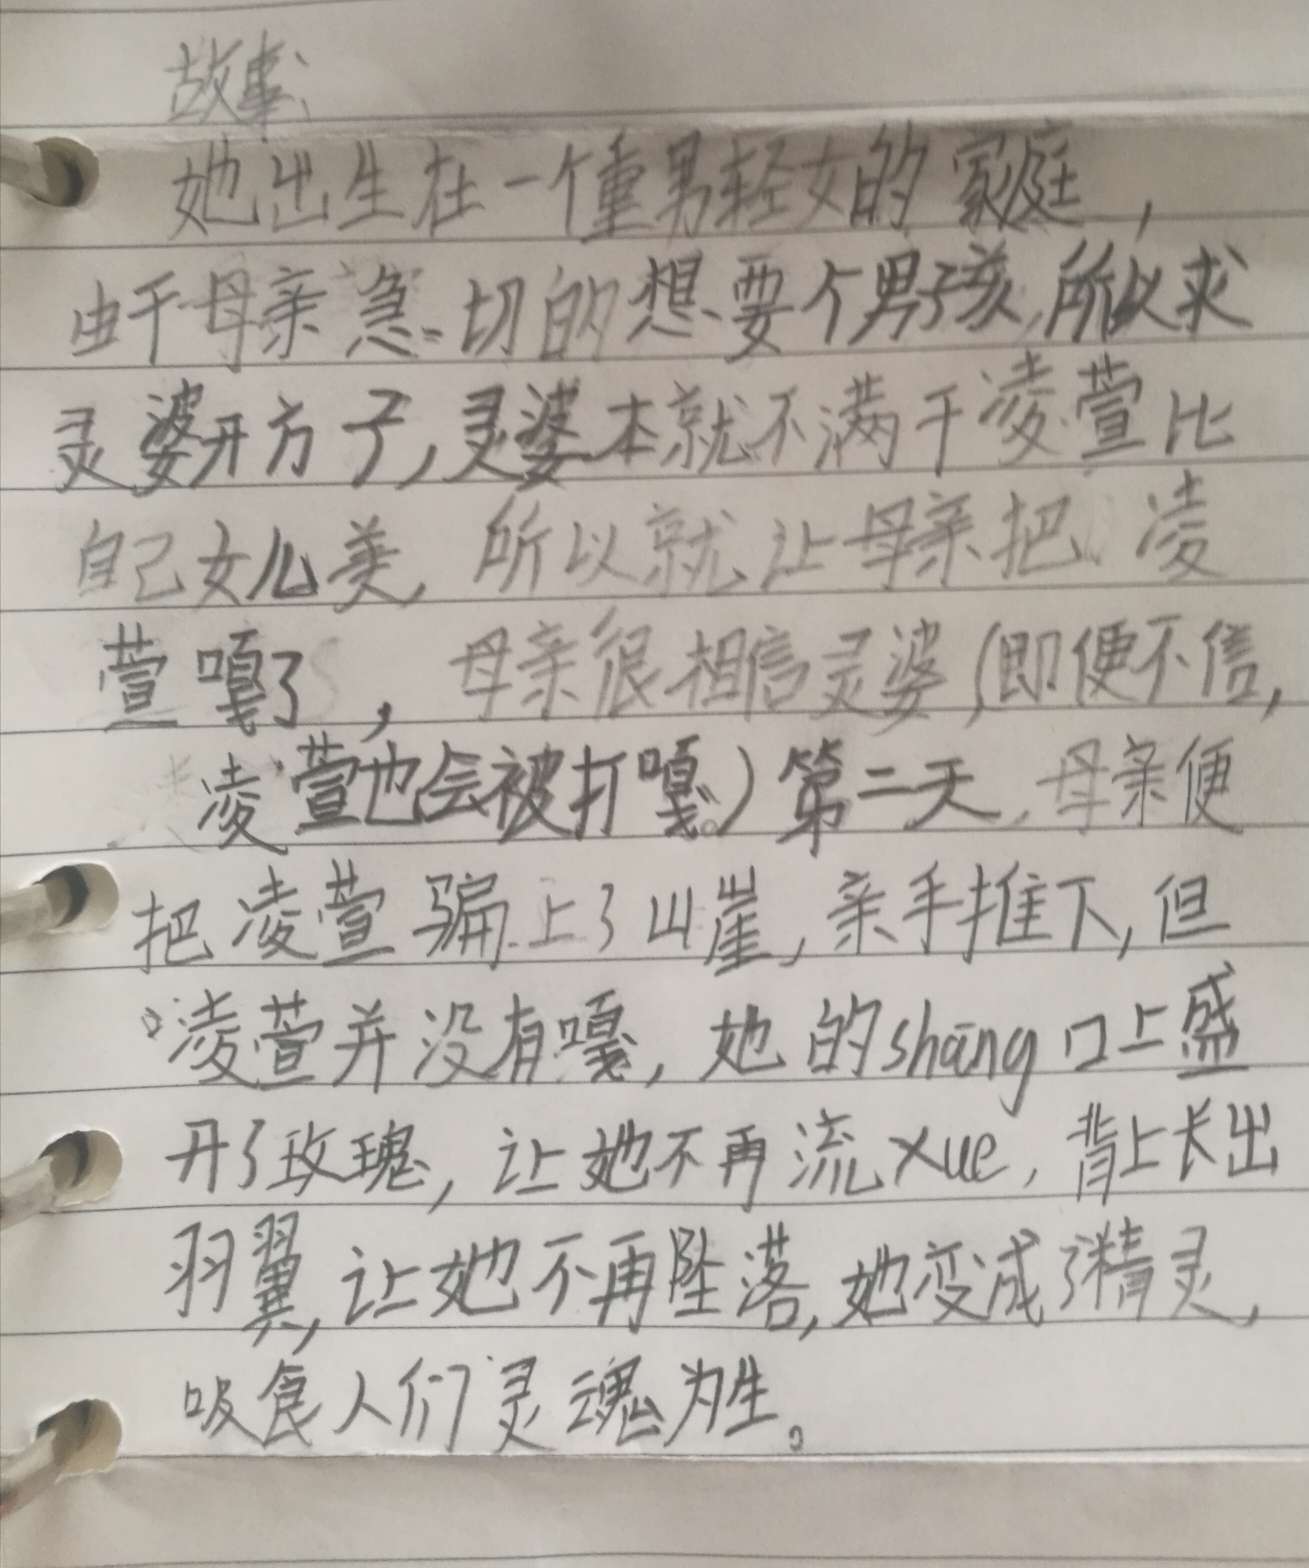 故事
她出生在一个重男轻女的家庭，
由于母亲急切的想要个男孩，所以求
灵婆开方子，灵婆本就不满于凌萱比
自己女儿美，所以就让母亲把凌
萱嘎了，母亲很相信灵婆（即便不信，
凌萱也会被打嘎。）第二天，母亲便
把凌萱骗上了山崖，亲手推下，但
凌萱并没有嘎，她的shāng口上盛
开了玫瑰，让她不再流xue，背上长出
羽翼，让她不再坠落，她变成了精灵，
吸食人们灵魂为生。